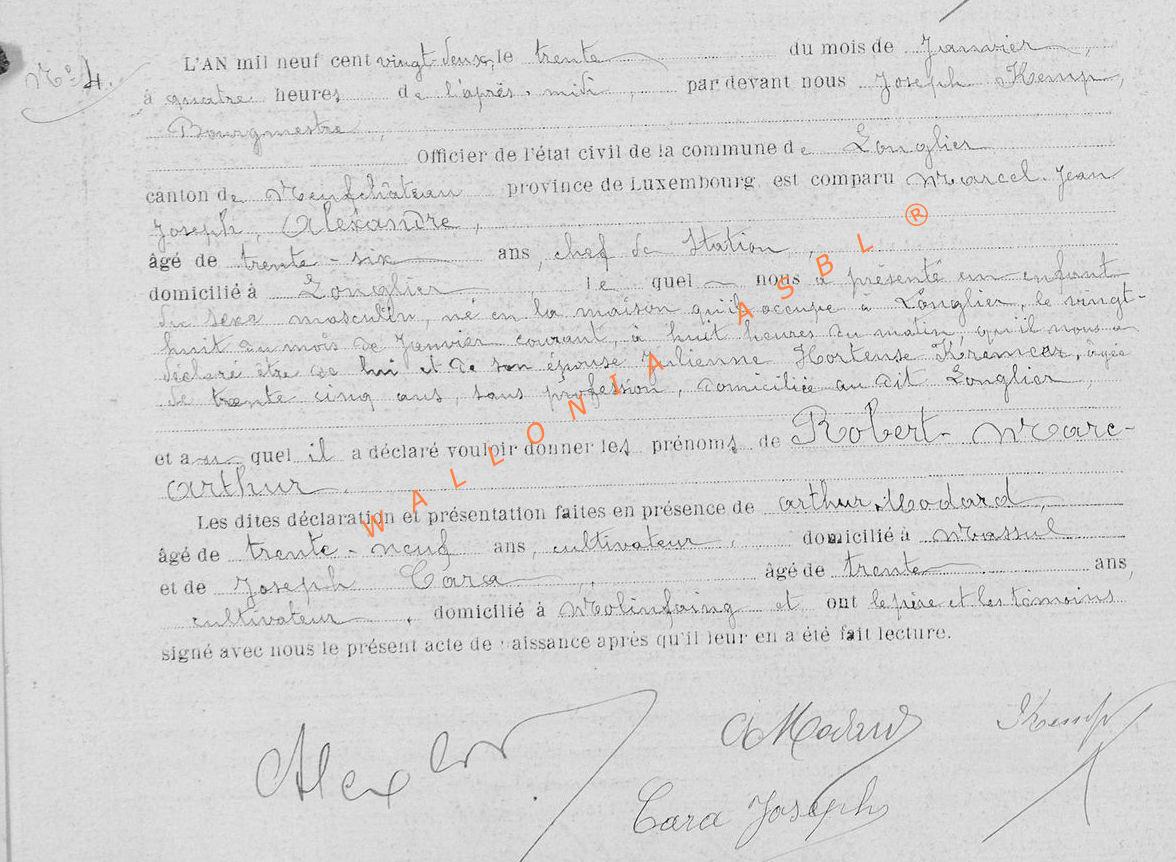 N° 4.
L'AN mil neuf cent vingt-deux, le trente du mois de Janvier,
à quatre heures de l'après-midi, par devant nous Joseph Kemp,
Bourgmestre,
Officier de l'état civil de la commune de Longlier
canton de Neufchâteau province de Luxembourg est comparu Marcel-Jean
Joseph, Alexandre,
âgé de trente-six ans, chef de Station,
domicilié à Longlier, le quel nous a présenté un enfant
du sexe masculin, né en la maison qu'il occupe à Longlier, le vingt-
huit du mois de Janvier courant, à huit heures du matin, qu'il nous a
déclaré être de lui et de son épouse Julienne Hortense Kremer, âgée
de trente cinq ans, sans profession, domiciliée au dit Longlier,
et au quel il a déclaré vouloir donner les prénoms de Robert-Marc-
Arthur.
Les dites déclaration et présentation faites en présence de Arthur Modard,
âgé de trente-neuf ans, cultivateur, domicilié à Massul
et de Joseph Cara, âgé de trente ans,
cultivateur, domicilié à Molinfaing et ont le père et les témoins
signé avec nous le présent acte de naissance après qu'il leur en a été fait lecture.
AModard Kemp
Cara Joseph
WALLONIA ASBL ®